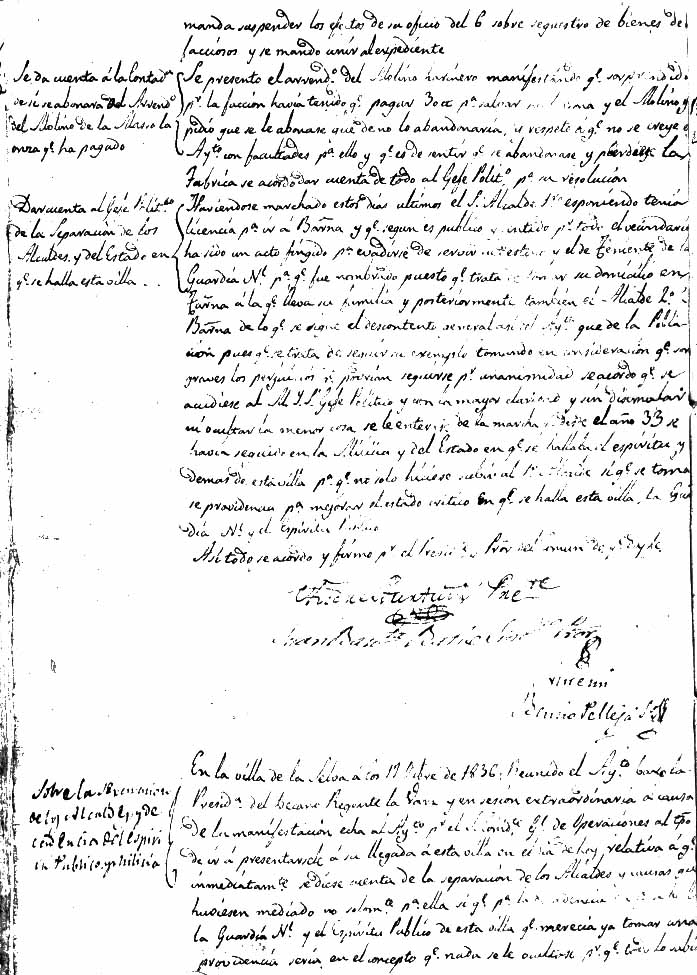 manda suspender los efectos de su oficio del 6 sobre sequestro de bienes de
facciosos y se mando unir al expediente
Se da cuenta á la Contadª
de si se abonara del Arrendº
del Molino de la Masso la
onza qº ha pagado
Se presento el arrendº del Molino harinero manifestando qº sorprendido
pº la faccion havia tenido qº pagar pª salvar y el Molino y
pidió que se le abonase que de no lo abandonaria, y respeto á qº no se creye
Aytº con facultades pª ello y qº es de sentir qº se abandonase y pierda la
Fabrica se acordo dar cuenta de todo al Gefe Politº pª su resolucion
Dar cuenta al Gefe Politº
de la Separacion de los
Alcaldes, y del Estado en
qº se halla esta villa
Haviendose marchado estos dias ultimos el Sº Alcalde 1º esponiendo tenia
licencia pª ir á Barna y qº segun es publico y pº todo el vecindario
ha sido un acto fingido pª evadirse de servir y el de Teniente de la
Guardia Nº pª qº fue nombrado puesto qº trata su domicilio en
á la qº lleva su familia y posteriormente tambien el Alcalde 2º
Barna de lo qº se sigue el descontento general asi del Aytº que de la Pobla-
cion pues qº se trata de seguir su exemplo tomando en consideracion qº son
graves los perjuicios qº podrian seguirse pº unanimidad se acordo qº se
acudiese al M. I. Sº Gefe Politico y con la mayor claridad y sin disimular
ni ocultar la menor cosa se le entere de la marcha qº desde el año 33 se
havia seguido en la Milicia y del Estado en qº se hallaba el espiritu y
demas de esta villa pª qº no solo hiciese subir al 1º Alcalde si qº se toma
se providencia pª mejorar el estado critico en qº se halla esta villa, la Guar
dia Nº y el Espiritu Publico
Asi todo se acordo y firmo pº el Presidte y Pror del comun de qº doy fe
Pre
Juan Bautª Pror
Benito Pellejá
Sobre la separacion
de los Alcaldes y de
cadencia del Espiri
tu Publico y Milicia
En la villa de la Selva á los 17 Obre de 1836; Reunido el Aytº baxo la
Presidª del Decano Regente la Vara y en sesion extraordinaria á causa
de la manifestacion echa al Aytº pº el Comdte Gl de Operaciones al tpo
de ir á presentarsele á su llegada á esta villa en el dia de hoy, relativa á qº
inmediatamte se diese cuenta de la separacion de los Alcaldes y causas que
huviesen mediado no solamte pª ella si qº pª la decadencia
la Guardia Nº y el Espiritu Publico de esta villa qº merecia ya tomar una
providencia seria, en el concepto qº nada se le ocultase pº qº todo lo sabia